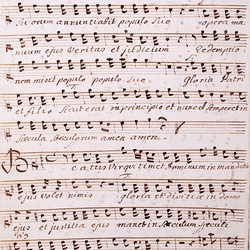 suorum annuntiabit populo suo opera ma
nuum ejus veritas et judicium Redemptio
nem misit populo populo suo Gloria Patri
et filio sicut erat in principio et nunc et semper et in
sæcula sæculorum amen amen
Beatus vir qui timet Dominum in mandatis
ejus volet nimis gloria et divitiæ in domo
ejus et justitia ejus manet in sæculum sæculi